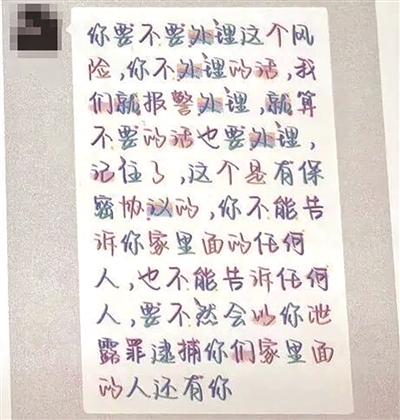 你要不要处理这个风
险,你不处理的话,我
们就报警处理,就算
不要的话也要处理,
记住了,这个是有保
密协议的,你不能告
诉你家里面的任何
人,也不能告诉任何
人,要不然会以你泄
露罪逮捕你们家里面
的人还有你